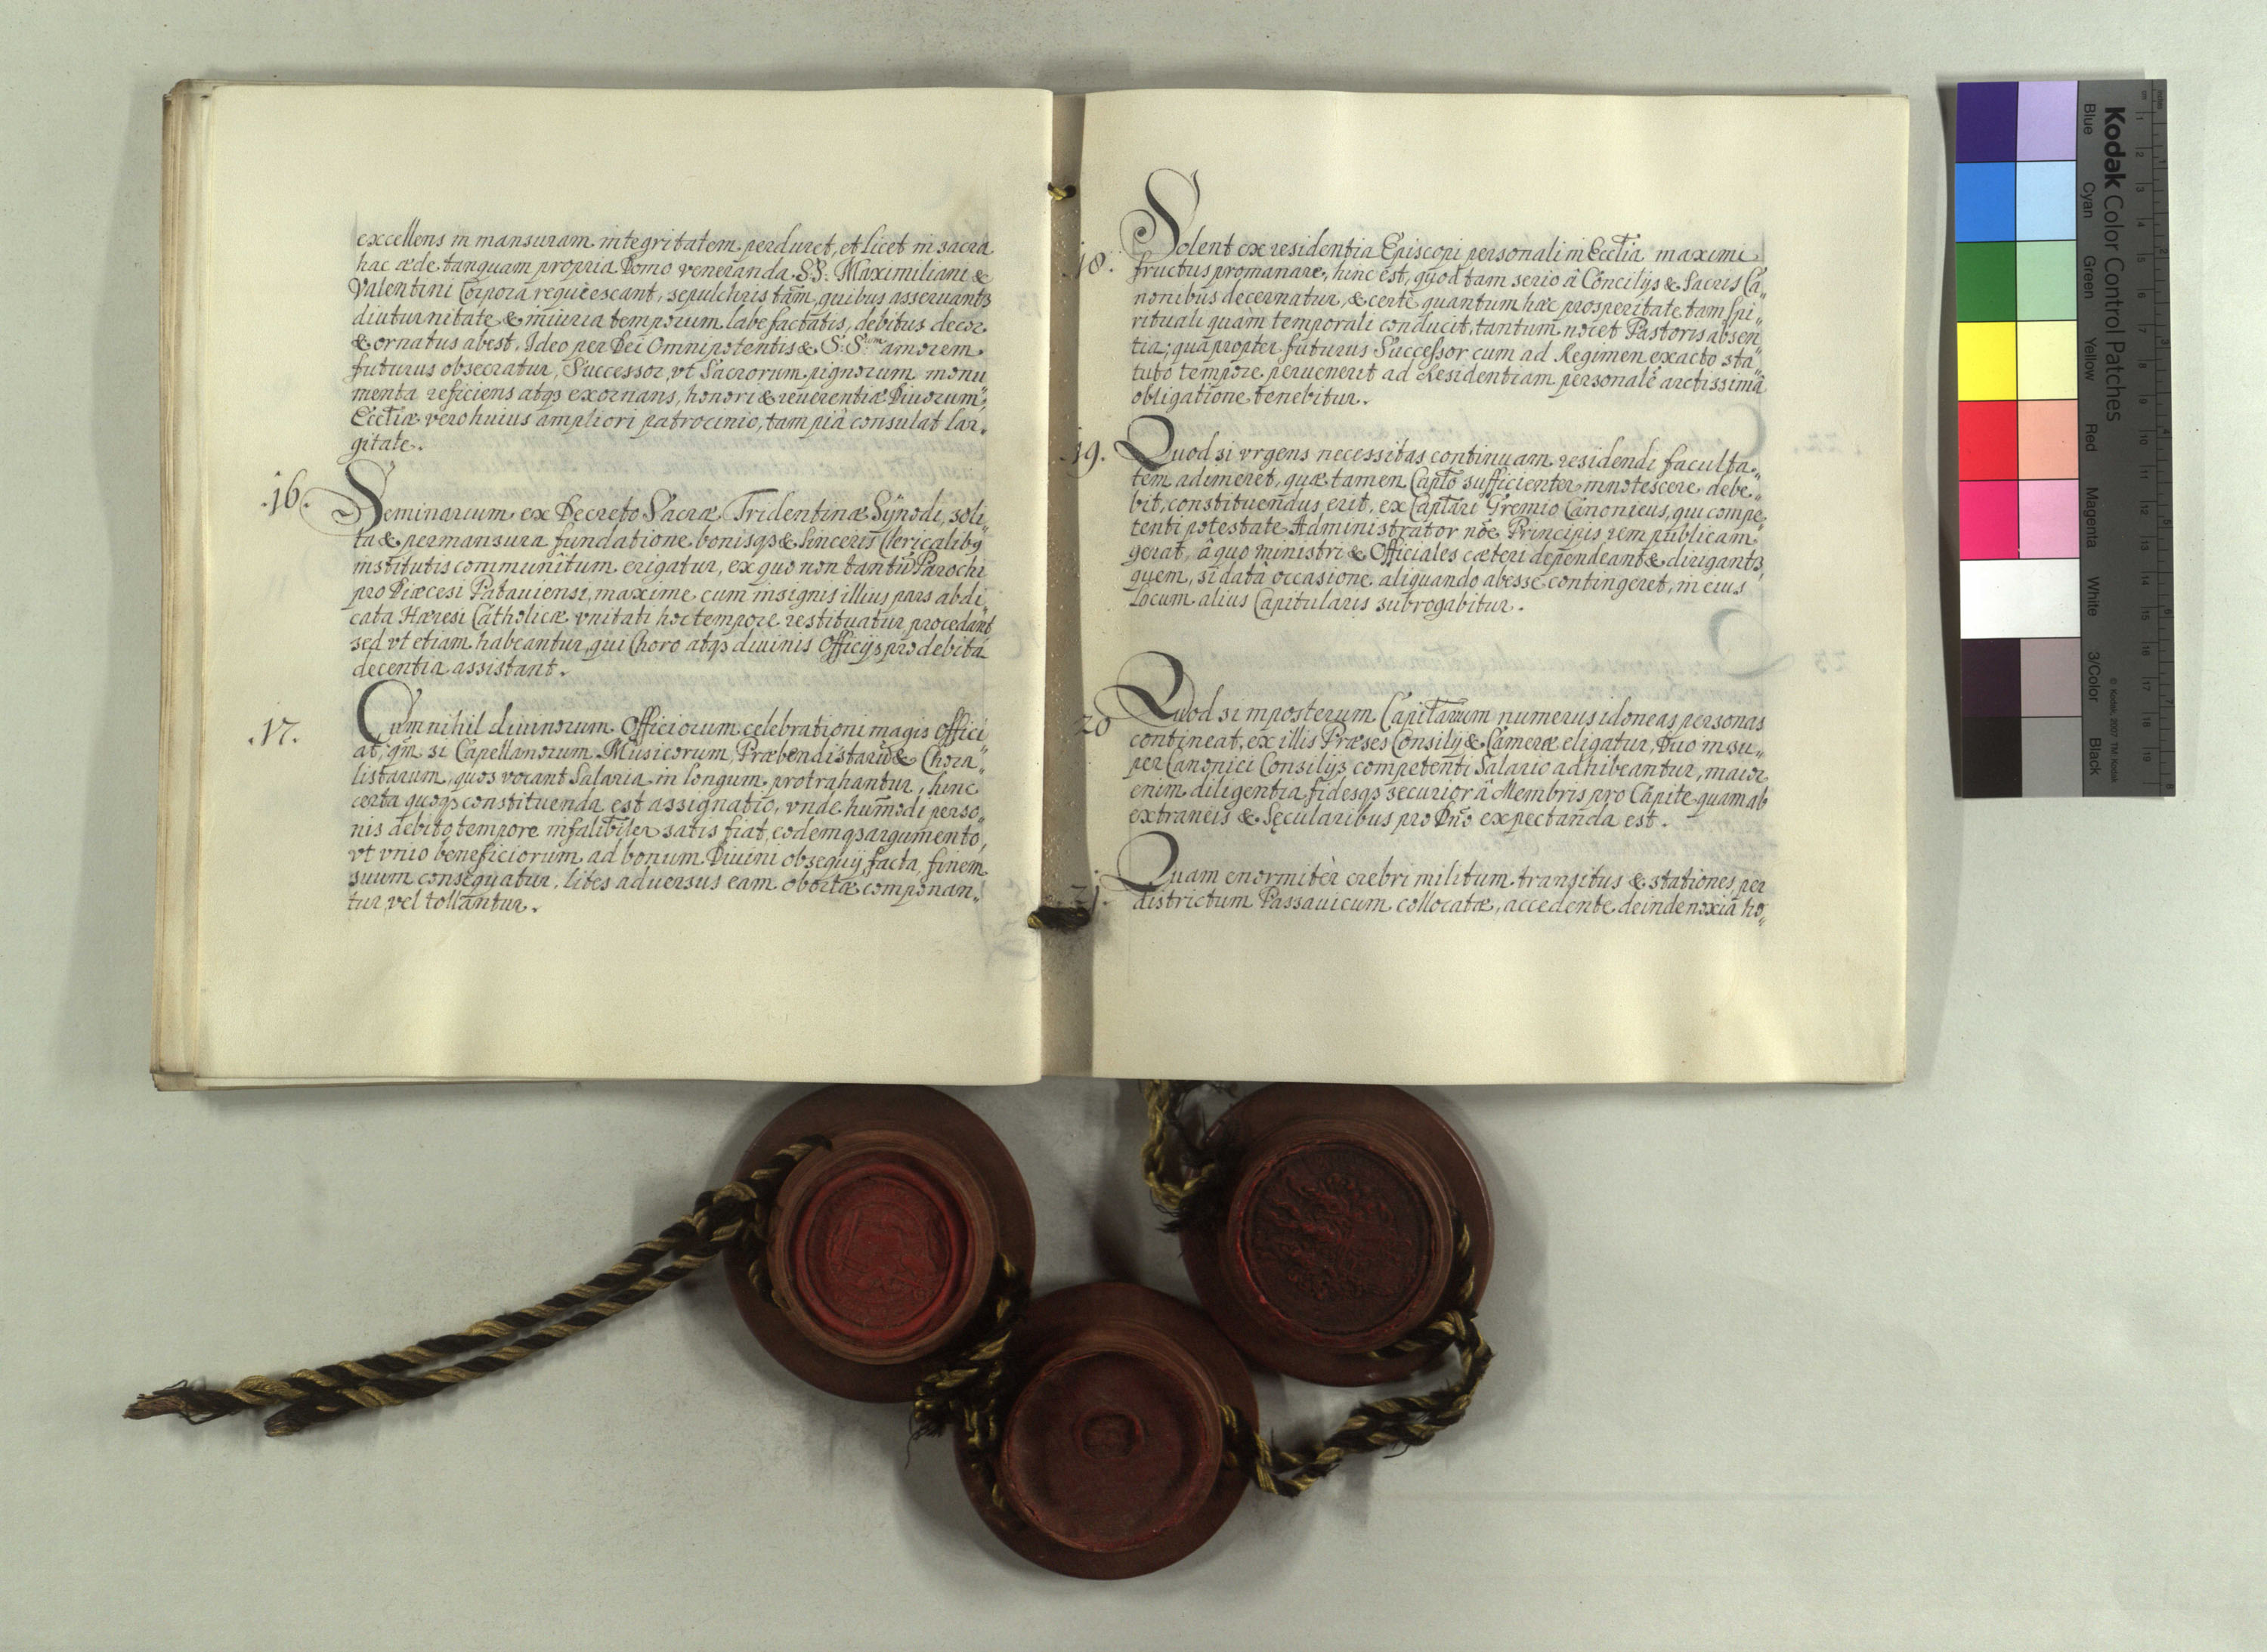 excellens in mansuram integritatem perduret, et licet in sacra
hac æde tanquam propria Domo veneranda SS: Maximiliani &
Valentini Corpora requiescant, sepulchris tam̄, quibus asseruantr
diuturnitate & iniuria temporum labefactatis, debitus decor
& ornatus abest, Ideo per Dei Omnipotentis & S: S.rum amorem
futurus obsecratur, Successor, vt Sacrorum pignorum monu
menta reficiens atqs exornans, honori & reuerentiæ Diuorum,
Eccl̄iæ vero huius ampliori patrocinio, tam piâ consulat lar„
gitate.
.16. Seminarium ex Decreto Sacræ Tridentinæ Sÿnodi, soli„
ta & permansura fundatione bonisqs & sinceris Clericalibq
institutis communitum erigatur, ex quo non tantū Parochi
pro Diæcesi Patauiensi, maxime cum insignis illius pars abdi„
cata Hæresi Catholicæ vnitati hoc tempore restituatur procedant
sed vt etiam habeantur, qui Choro atqs diuinis Officijs pro debitâ
decentia assistant.
.17. Cum nihil diuinorum Officiorum celebrationi magis offici
at, qm̄ si Capellanorum Musicorum, Præbendistarū & Chora„
listarum, quos vocant Salaria in longum protrahantur, hinc
certa quoqs constituenda est assignatio, vnde hum̄odi perso„
nis debito tempore infalibil̄er satis fiat, eodemqs argumento,
vt vnio beneficiorum ad bonum Diuini obsequij facta, finem
suum consequatur, lites aduersus eam obortæ componan„
tur, vel tollantur.
18. Solent ex residentia Episcopi personali in Eccl̄ia maximi
fructus promanare, hinc est, quod tam serio â Concilijs & Sacris Ca„
nonibus decernatur, & certè quantum hæc prosperitate tam spi„
rituali quàm temporali conducit, tantum nocet Pastoris absen
tia; quapropter futurus Successor cum ad Regimen exacto sta„
tuto tempore peruenerit ad Residentiam personalē arctissimâ
obligatione tenebitur.
.19. Quod si vrgens necessitas continuam residendi faculta„
tem adimeret, quæ tamen Capto̅ sufficienter innotescere debe„
bit, constituendus erit, ex Capt̄ari Gremio Canonicus, qui compe„
tenti potestate Administrator nōe Principis rem publicam
gerat, â quo ministri & Officiales cæteri dependeant & dirigantr,
quem, si datâ occasione aliquando abesse contingeret, in eius
Locum alius Capitularis subrogabitur.
20 Quod si imposterum Capitarium numerus idoneas personas
contineat, ex illis Præses Consilij & Cameræ eligatur, Duo insu„
per Canonici Consilijs competenti Salario adhibeantur, maior
enim diligentia, fidesqs securior â Membris pro Capite quam ab
extraneis & Sęcularibus pro Dn̄o expectanda est.
21. Quam enormitèr crebri militum transitus & stationes, per
districtum Passauicum collocatæ, accedente deinde noxiâ ho„
Kodak Color Control Patches
Blue Cyan Green Yellow Red Magenta White 3/Color Black
© Kodak, 2007 TM: Kodak